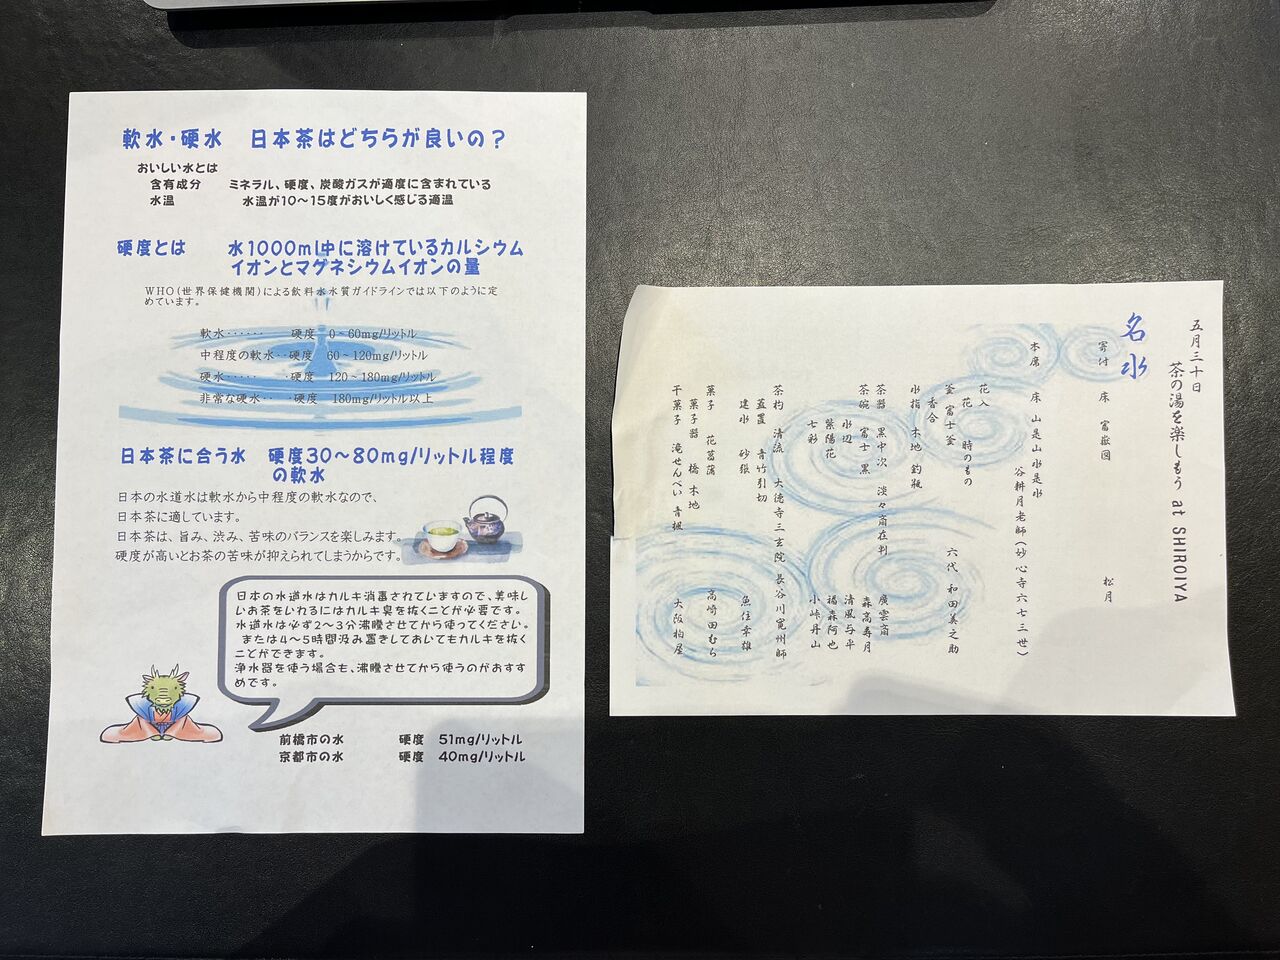 軟水・硬水　日本茶はどちらが良いの？
おいしい水とは
含有成分　ミネラル、硬度、炭酸ガスが適度に含まれている
水温　水温が10～15度がおいしく感じる適温
硬度とは　水1000ml中に溶けているカルシウム
イオンとマグネシウムイオンの量
WHO(世界保健機関)による飲料水水質ガイドラインでは以下のように定
めています。
軟水‥‥‥　硬度　0~60mg/リットル
中程度の軟水‥硬度　60~120mg/リットル
硬水‥‥　・硬度　120~180mg/リットル
非常な硬水‥　・硬度　180mg/リットル以上
日本茶に合う水　硬度30～80mg/リットル程度
の軟水
日本の水道水は軟水から中程度の軟水なので、
日本茶に適しています。
日本茶は、旨み、渋み、苦味のバランスを楽しみます。
硬度が高いとお茶の苦味が抑えられてしまうからです。
日本の水道水はカルキ消毒されていますので、美味し
いお茶をいれるにはカルキ臭を抜くことが必要です。
水道水は必ず2～3分沸騰させてから使ってください。
または4～5時間汲み置きしておいてもカルキを抜く
ことができます。
浄水器を使う場合も、沸騰させてから使うのがおすす
めです。
前橋市の水　硬度　51mg/リットル
京都市の水　硬度　40mg/リットル
五月三十日
茶の湯を楽しもう at SHIROIYA
名水
寄付　床　富嶽図　松月
本席　床　山是山水是水
谷耕月老師(妙心寺六七三世)
花入
花　時のもの
釜　富士釜　六代　和田美之助
香合
水指　木地　釣瓶
茶器　黒中次　淡々斎在判　廣雲斎
茶碗　富士　黒　森高寿月
水辺　清風与平
紫陽花　福森阿也
七彩　小峠丹山
茶杓　清流　大徳寺三玄院　長谷川寛州師
蓋置　青竹引切
建水　砂張　魚住幸雄
菓子　花菖蒲　高崎田むら
菓子器　橋　木地
干菓子　滝せんべい　青楓　大阪柏屋